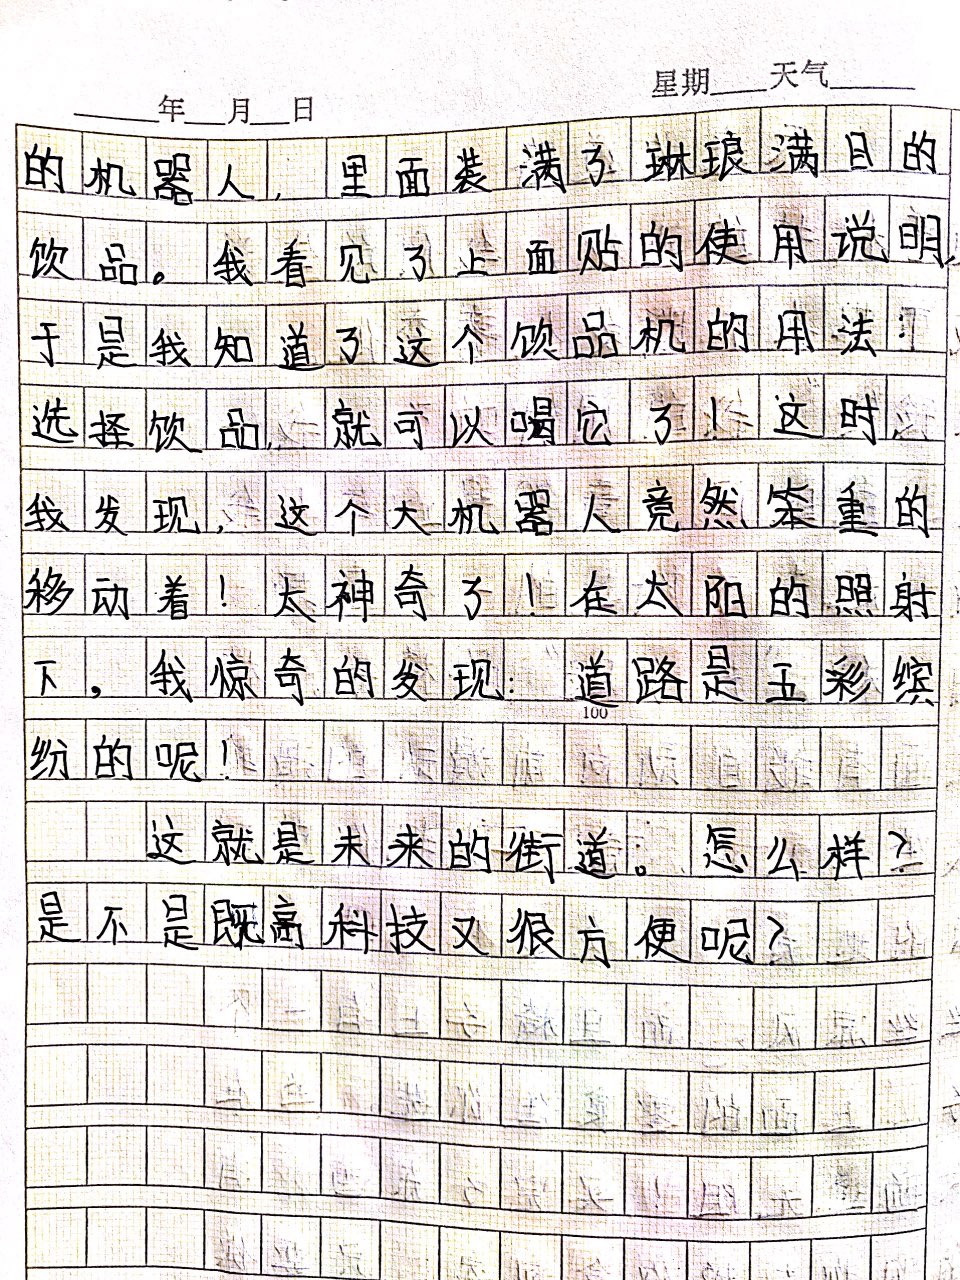 星期____天气____
____年__月__日
的机器人，里面装满了琳琅满目的
饮品。我看见了上面贴的使用说明，
于是我知道了这个饮品机的用法：
选择饮品，就可以喝它了！这时，
我发现，这个大机器人竟然笨重的
移动着！太神奇了！在太阳的照射
下，我惊奇的发现：道路是五彩缤
100
纷的呢！
这就是未来的街道。怎么样？
是不是既高科技又很方便呢？